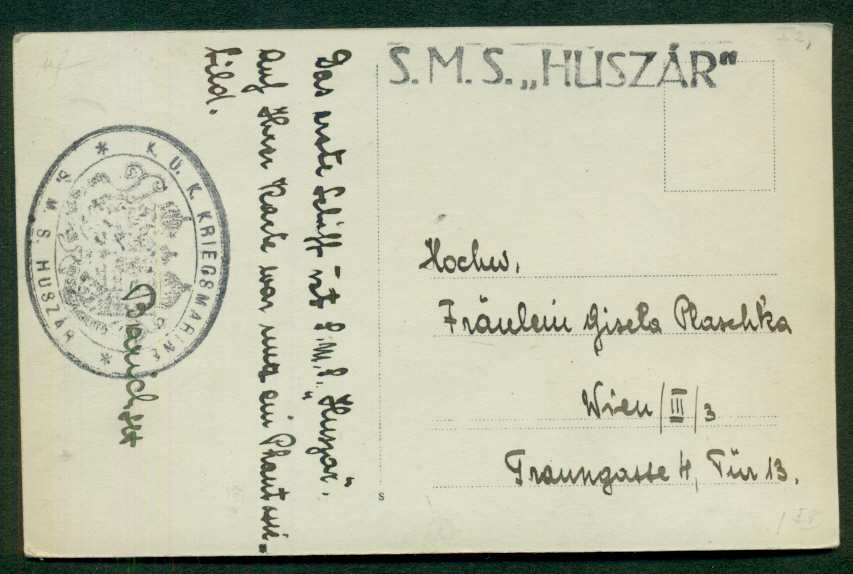 S. M. S. „HUSZÁR"
Das erste Schiff ist S.M.S. „Huszár",
auf Ihrer Karte war nur ein Phantasie-
bild.
K. U. K. KRIEGSMARINE
* S. M. S. HUSZÁR *
Hochw.
Fräulein Gisela Plaschka
Wien/III/3
Traungasse 4, Tür 13.
s